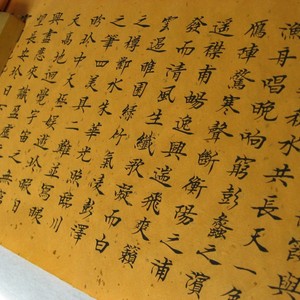 霞與
秋水共長天一色
漁舟唱晚响窮彭蠡之濱
雁陣驚寒聲斷衡陽之浦
遙襟甫暢逸興遄飛爽籟
發而清風生纖歌凝而白
雲遏睢園綠竹氣凌彭澤
之樽鄴水朱華光照臨川
之筆四美具二難並窮睇
眄於中天極娛遊於暇
天高地迥覺宇宙之無
興盡悲來識盈虛之
望長安於日下